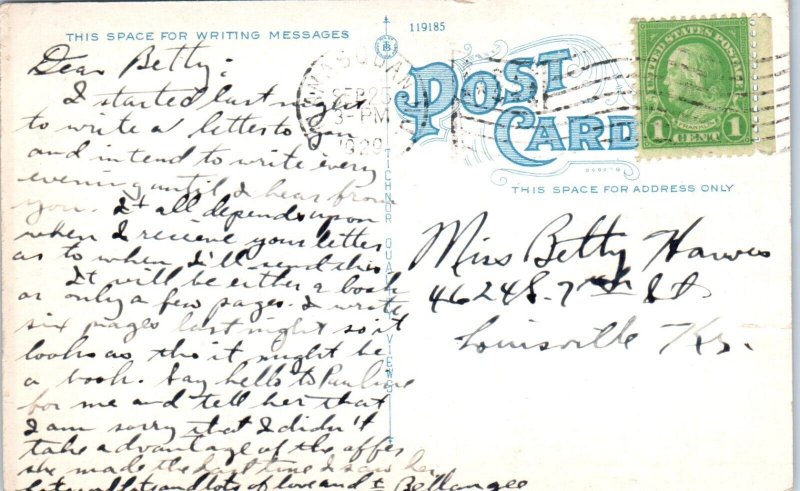 THIS SPACE FOR WRITING MESSAGES
119185
POST
CARD
THIS SPACE FOR ADDRESS ONLY
UNITED STATES POSTAGE
1 CENT 1
SEP 25
3-PM
1929
TICHNOR QUALITY VIEWS
Dear Betty:
I started last night
to write a letter to you
and intend to write every
evening until I hear from
you. It all depends upon
when I receive your letter
as to when I'll send this
It will be either a book
or only a few pages. I wrote
six pages last night so it
looks as tho it might be
a book. Say hello to Pauline
for me and tell her that
I am sorry that I didn't
take advantage of the offer
she made the last time I saw her
lots and lots of love and
Miss Betty Hawes
4624 S. 7th St
Louisville Ky.